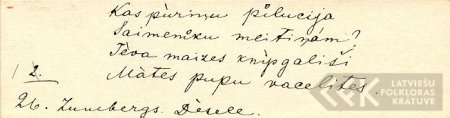 Kas pūriņu pilucija
Saimenīku meitiņām?
Tēva maizes knipgališi
1 2. Mātes pupu vacelītes.
26. Zumbergs. Dēsele.
LATVIEŠU
FOLKLORAS
KRĀTUVE